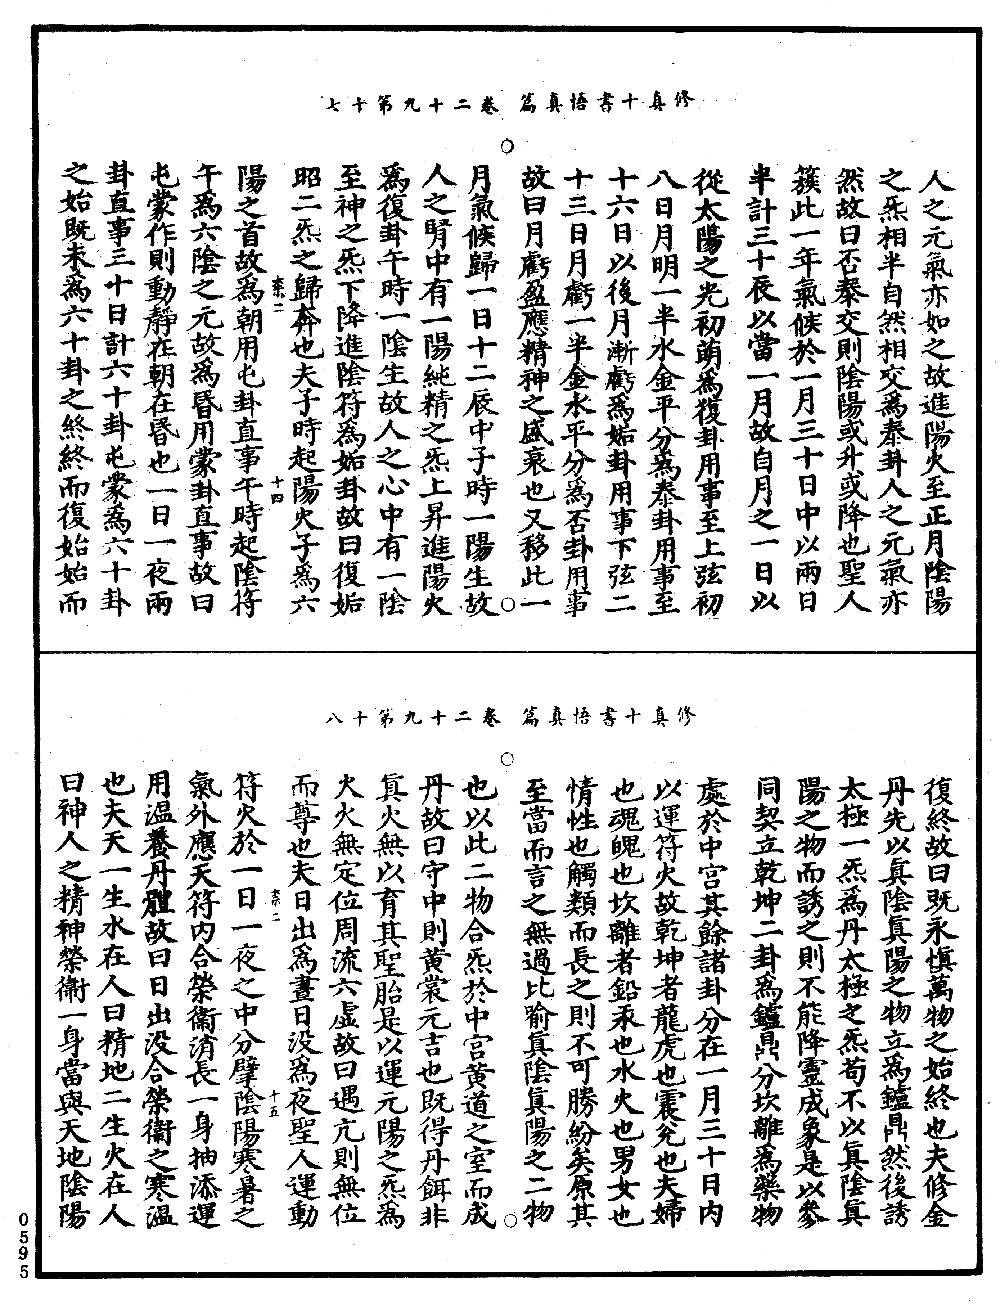 修真十書悟真篇　卷二十九第十七
人之元氣亦如之故進陽火至正月陰陽
之炁相半自然相交為泰卦人之元氣亦
然故曰否泰交則陰陽或升或降也聖人
簇此一年氣候於一月三十日中以兩日
半計三十辰以當一月故自月之一日以
從太陽之光初萌為復卦用事至上弦初
八日月明一半水金平分為泰卦用事至
十六日以後月漸虧為姤卦用事下弦二
十三日月虧一半金水平分為否卦用事
故曰月虧盈應精神之盛衰也又移此一
月氣候歸一日十二辰中子時一陽生故
人之腎中有一陽純精之炁上昇進陽火
為復卦午時一陰生故人之心中有一陰
至神之炁下降進陰符為姤卦故曰復姤
昭二炁之歸奔也夫子時起陽火子為六
柰二　十四
陽之首故為朝用屯卦直事午時起陰符
午為六陰之元故為昏用蒙卦直事故曰
屯蒙作則動靜在朝在昏也一日一夜兩
卦直事三十日計六十卦屯蒙為六十卦
之始既未為六十卦之終終而復始始而
修真十書悟真篇　卷二十九第十八
復終故曰既永慎萬物之始終也夫修金
丹先以真陰真陽之物立為鑪鼎然後誘
太極一炁為丹太極之炁苟不以真陰真
陽之物而誘之則不能降靈成象是以參
同契立乾坤二卦為鑪鼎分坎離為藥物
處於中宮其餘諸卦分在一月三十日內
以運符火故乾坤者龍虎也震兌也夫婦
也魂魄也坎離者鉛汞也水火也男女也
情性也觸類而長之則不可勝紛矣原其
至當而言之無過比喻真陰真陽之二物
也以此二物合炁於中宮黃道之室而成
丹故曰守中則黃裳元吉也既得丹餌非
真火無以育其聖胎是以運元陽之炁為
火火無定位周流六虛故曰遇亢則無位
而尊也夫日出為晝日沒為夜聖人運動
柰二　十五
符火於一日一夜之中分擘陰陽寒暑之
氣外應天符內合榮衛消長一身抽添運
用溫養丹體故曰日出沒合榮衛之寒溫
也夫天一生水在人曰精地二生火在人
曰神人之精神榮衛一身當與天地陰陽
0595